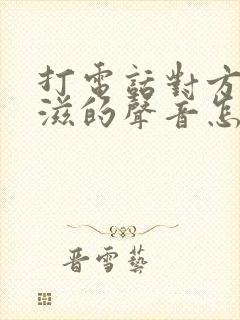 打電話對方
滋的聲音怎
晉雪藝